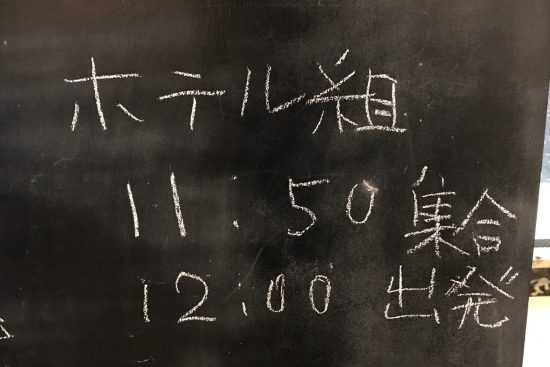 ホテル組
11:50 集合
12:00 出発